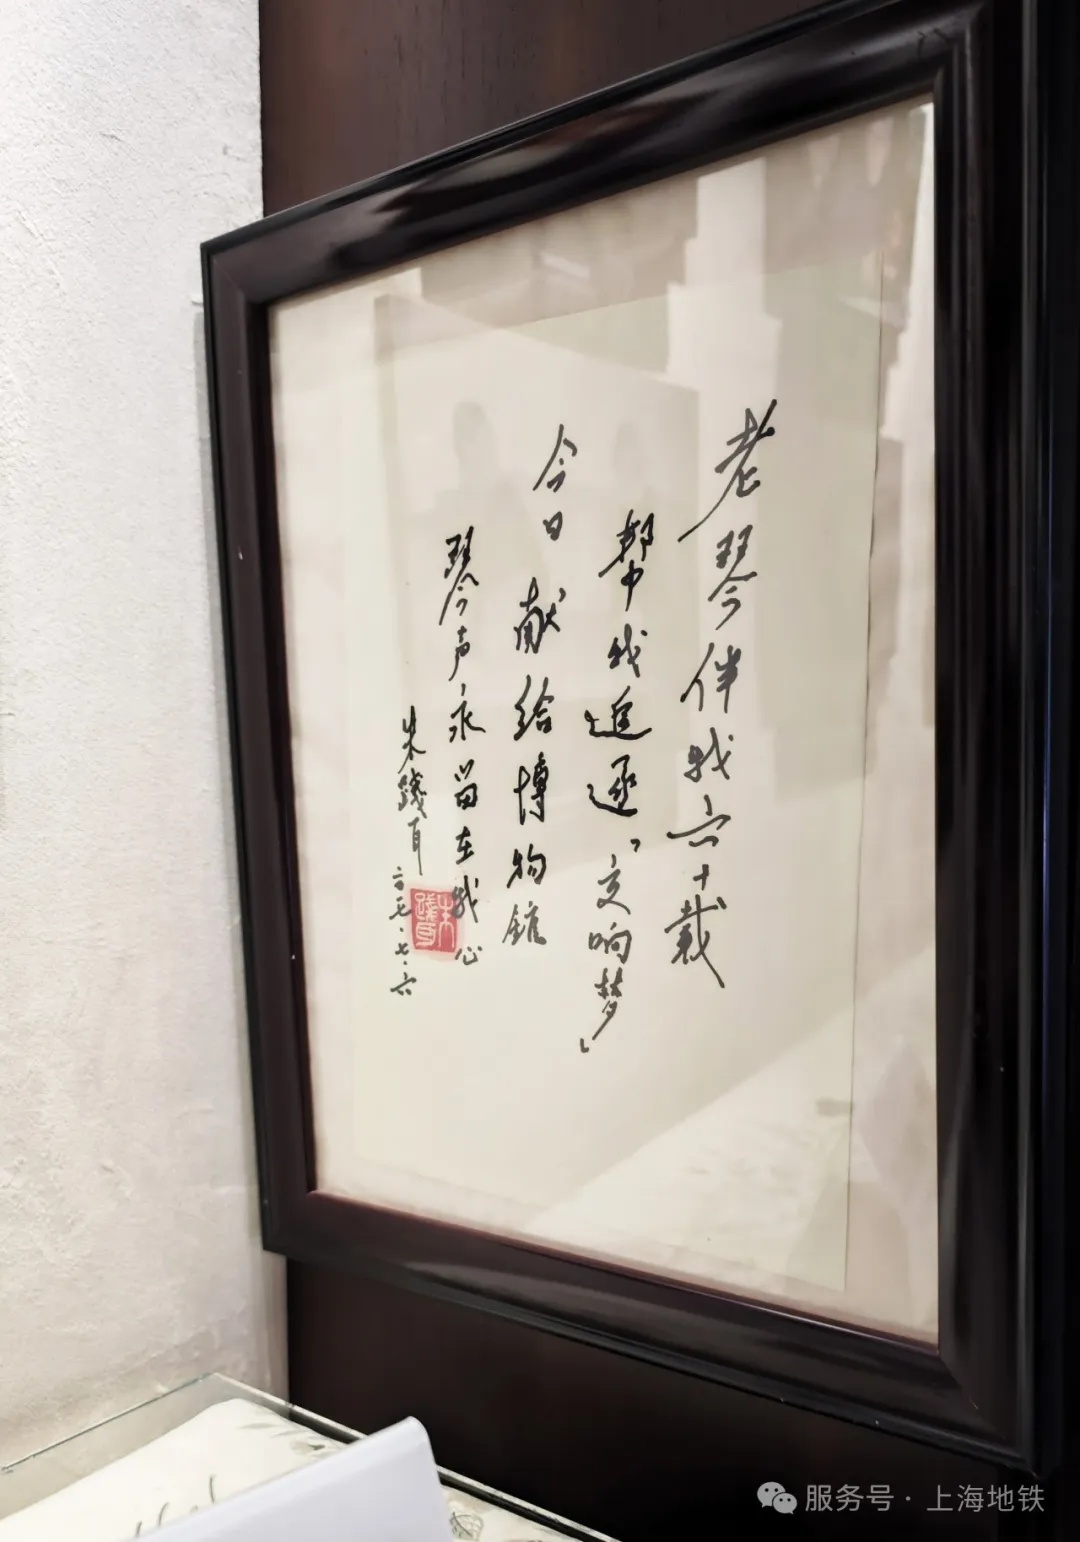 老琴伴我六十载
帮我追逐“交响梦”
今日献给博物馆
琴声永留在我心
朱践耳
朱践耳
服务号 · 上海地铁